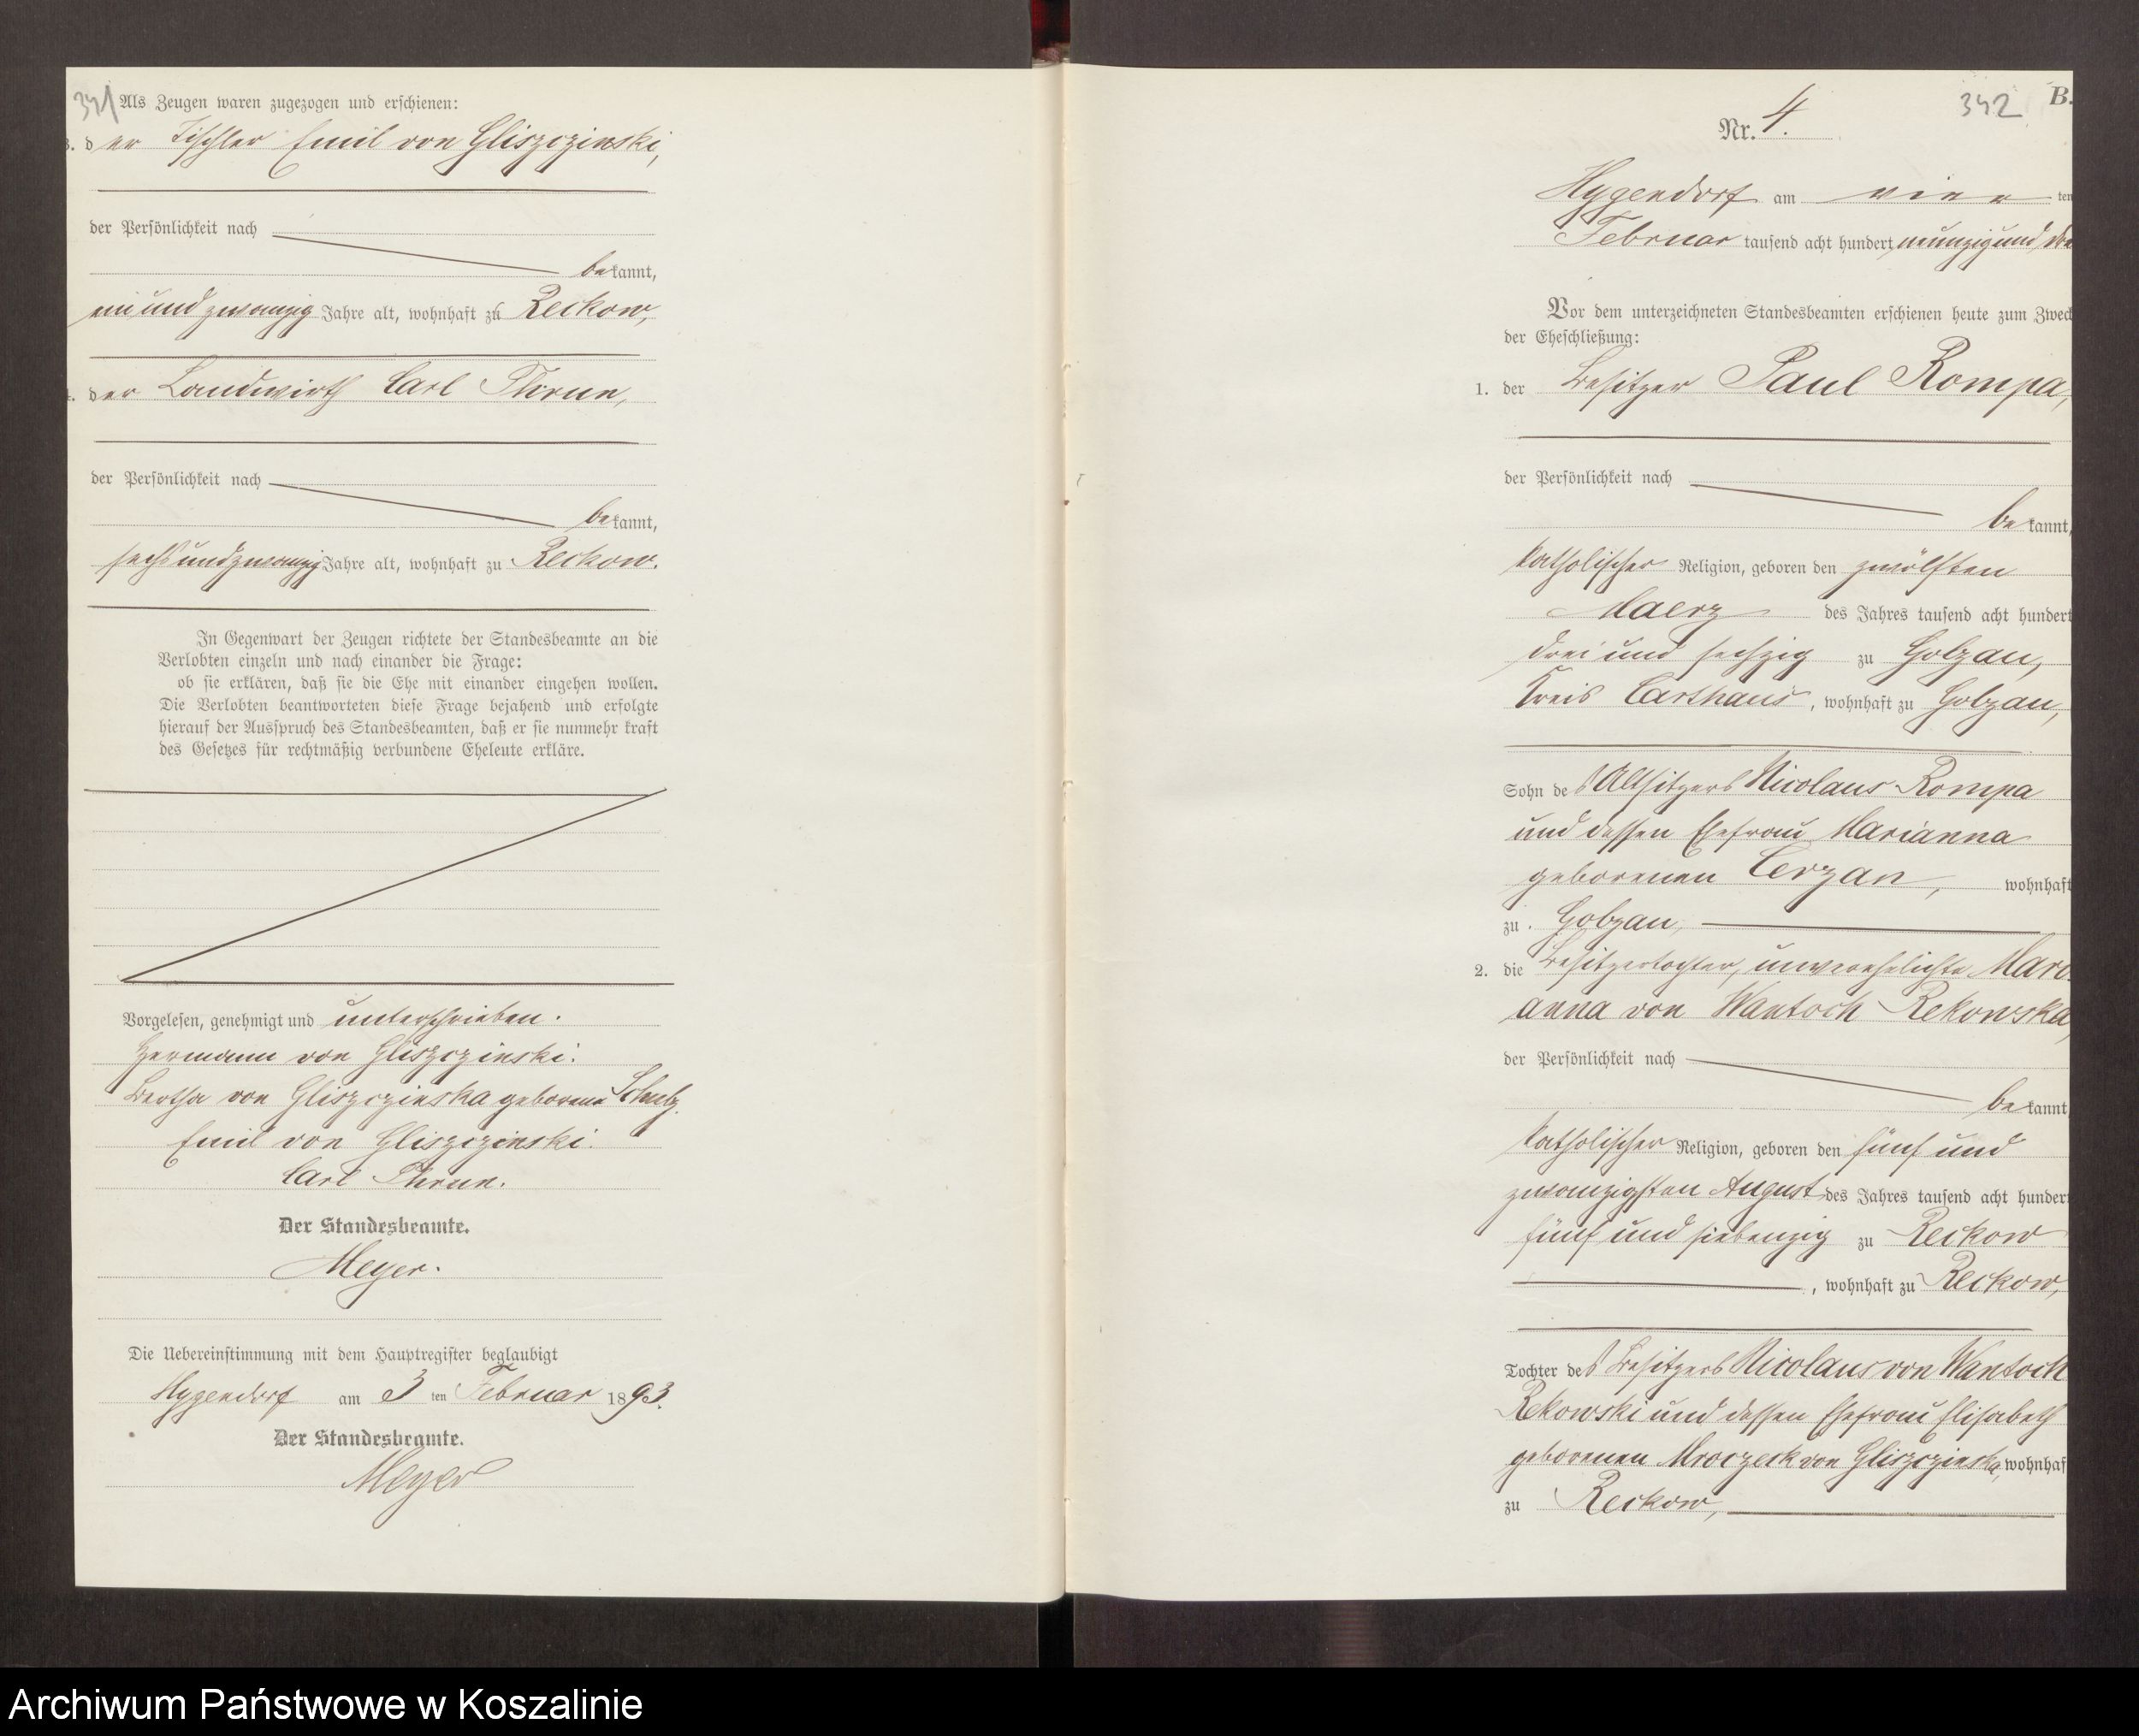 341
Als Zeugen waren zugezogen und erschienen:
3. der Tischler Emil von Gliszczinski,
der Persönlichkeit nach
bekannt,
einundzwanzig Jahre alt, wohnhaft zu Reckow,
4. der Landwirth Carl Thrun,
der Persönlichkeit nach
bekannt,
sechsundzwanzig Jahre alt, wohnhaft zu Reckow.
In Gegenwart der Zeugen richtete der Standesbeamte an die
Verlobten einzeln und nach einander die Frage:
ob sie erklären, daß sie die Ehe mit einander eingehen wollen.
Die Verlobten beantworteten diese Frage bejahend und erfolgte
hierauf der Ausspruch des Standesbeamten, daß er sie nunmehr kraft
des Gesetzes für rechtmäßig verbundene Eheleute erkläre.
Vorgelesen, genehmigt und unterschrieben.
Hermann von Gliszczinski.
Bertha von Gliszczinska geborene Schulz.
Emil von Gliszczinski.
Carl Thrun.
Der Standesbeamte.
Meyer.
Die Uebereinstimmung mit dem Hauptregister beglaubigt
Hygendorf am 3 ten Februar 1893.
Der Standesbeamte.
Meyer
342
B.
Nr. 4.
Hygendorf am vier ten
Februar tausend acht hundert neunzig und drei
Vor dem unterzeichneten Standesbeamten erschienen heute zum Zweck
der Eheschließung:
1. der Besitzer Paul Rompa,
der Persönlichkeit nach
bekannt,
katholischer Religion, geboren den zwölften
Maerz des Jahres tausend acht hundert
drei und sechzig zu Golzau,
Kreis Carthaus, wohnhaft zu Golzau,
Sohn des Altsitzers Nicolaus Rompa
und dessen Ehefrau Marianna
geborenen Cerzan, wohnhaft
zu Golzau,
2. die Besitzertochter, unverehelichte Mari
anna von Wantoch Rekowska,
der Persönlichkeit nach
bekannt
katholischer Religion, geboren den fünf und
zwanzigsten August des Jahres tausend acht hundert
fünf und siebenzig zu Reckow
, wohnhaft zu Reckow,
Tochter des Besitzers Nicolaus von Wantoch
Rekowski und dessen Ehefrau Elisabeth
geborenen Mroczeck von Gliszczinska, wohnhaf
zu Reckow,
Archiwum Państwowe w Koszalinie